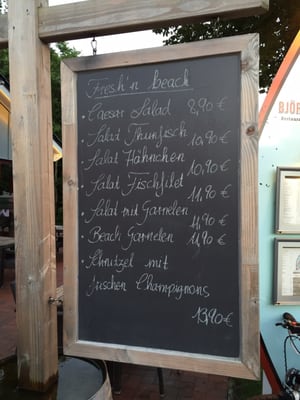 Fresh'n beach
Caesar Salad 8,90 €
Salat Thunfisch 10,90 €
Salat Hähnchen 10,90 €
Salat Fischfilet 11,90 €
Salat mit Garnelen 11,90 €
Beach Garnelen 11,90 €
Schnitzel mit
frischen Champignons
13,90 €
BJÖ